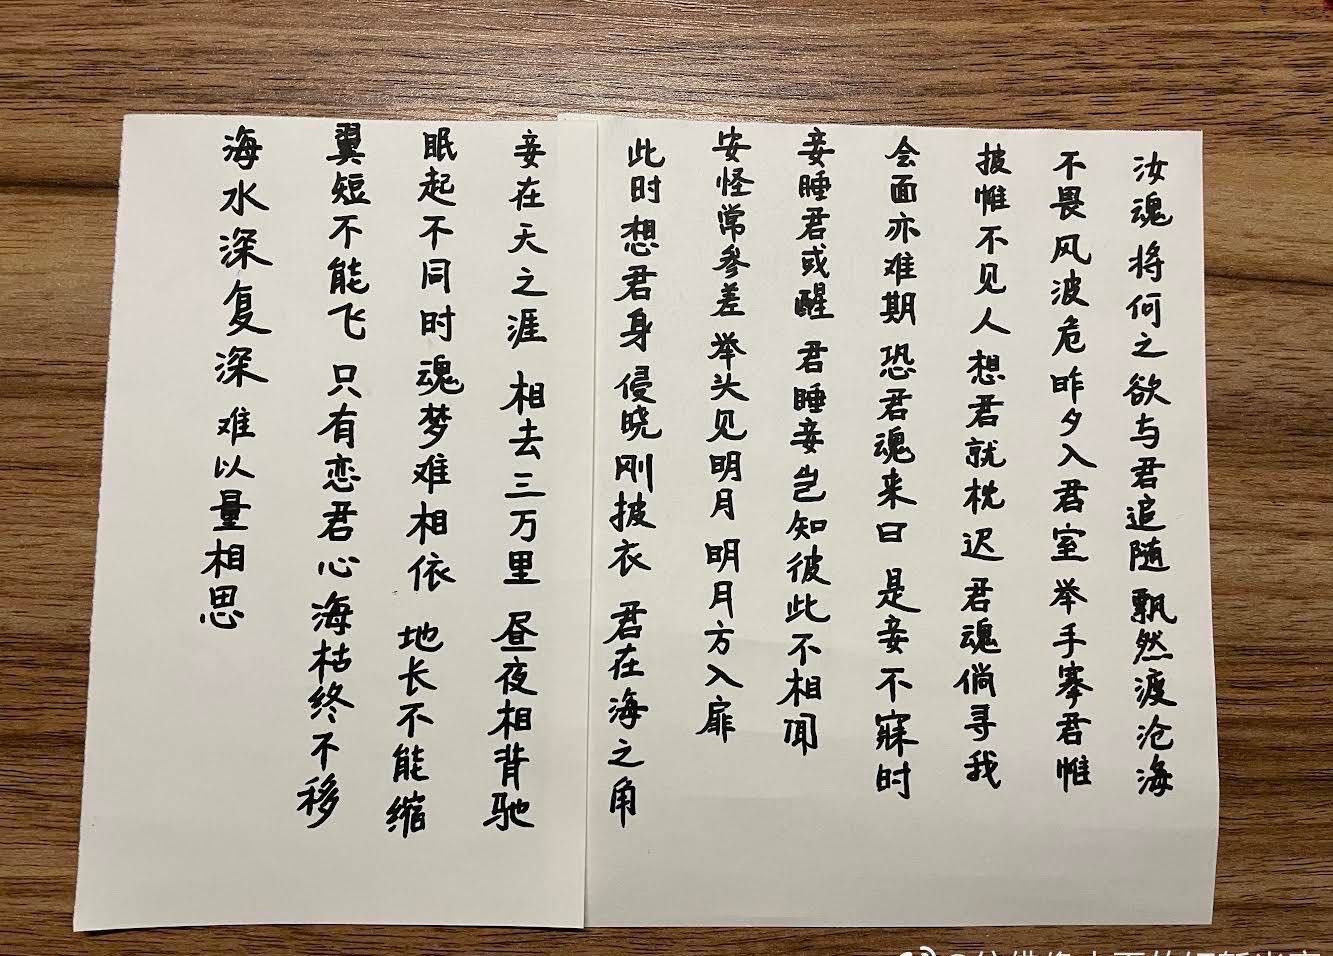 汝魂将何之 欲与君追随 飘然渡沧海
不畏风波危 昨夕入君室 举手搴君帷
披帷不见人 想君就枕迟 君魂倘寻我
会面亦难期 恐君魂来日 是妾不寐时
妾睡君或醒 君睡妾岂知 彼此不相闻
安怪常参差 举头见明月 明月方入扉
此时想君身 侵晓刚披衣 君在海之角
妾在天之涯 相去三万里 昼夜相背驰
眠起不同时 魂梦难相依 地长不能缩
翼短不能飞 只有恋君心 海枯终不移
海水深复深 难以量相思